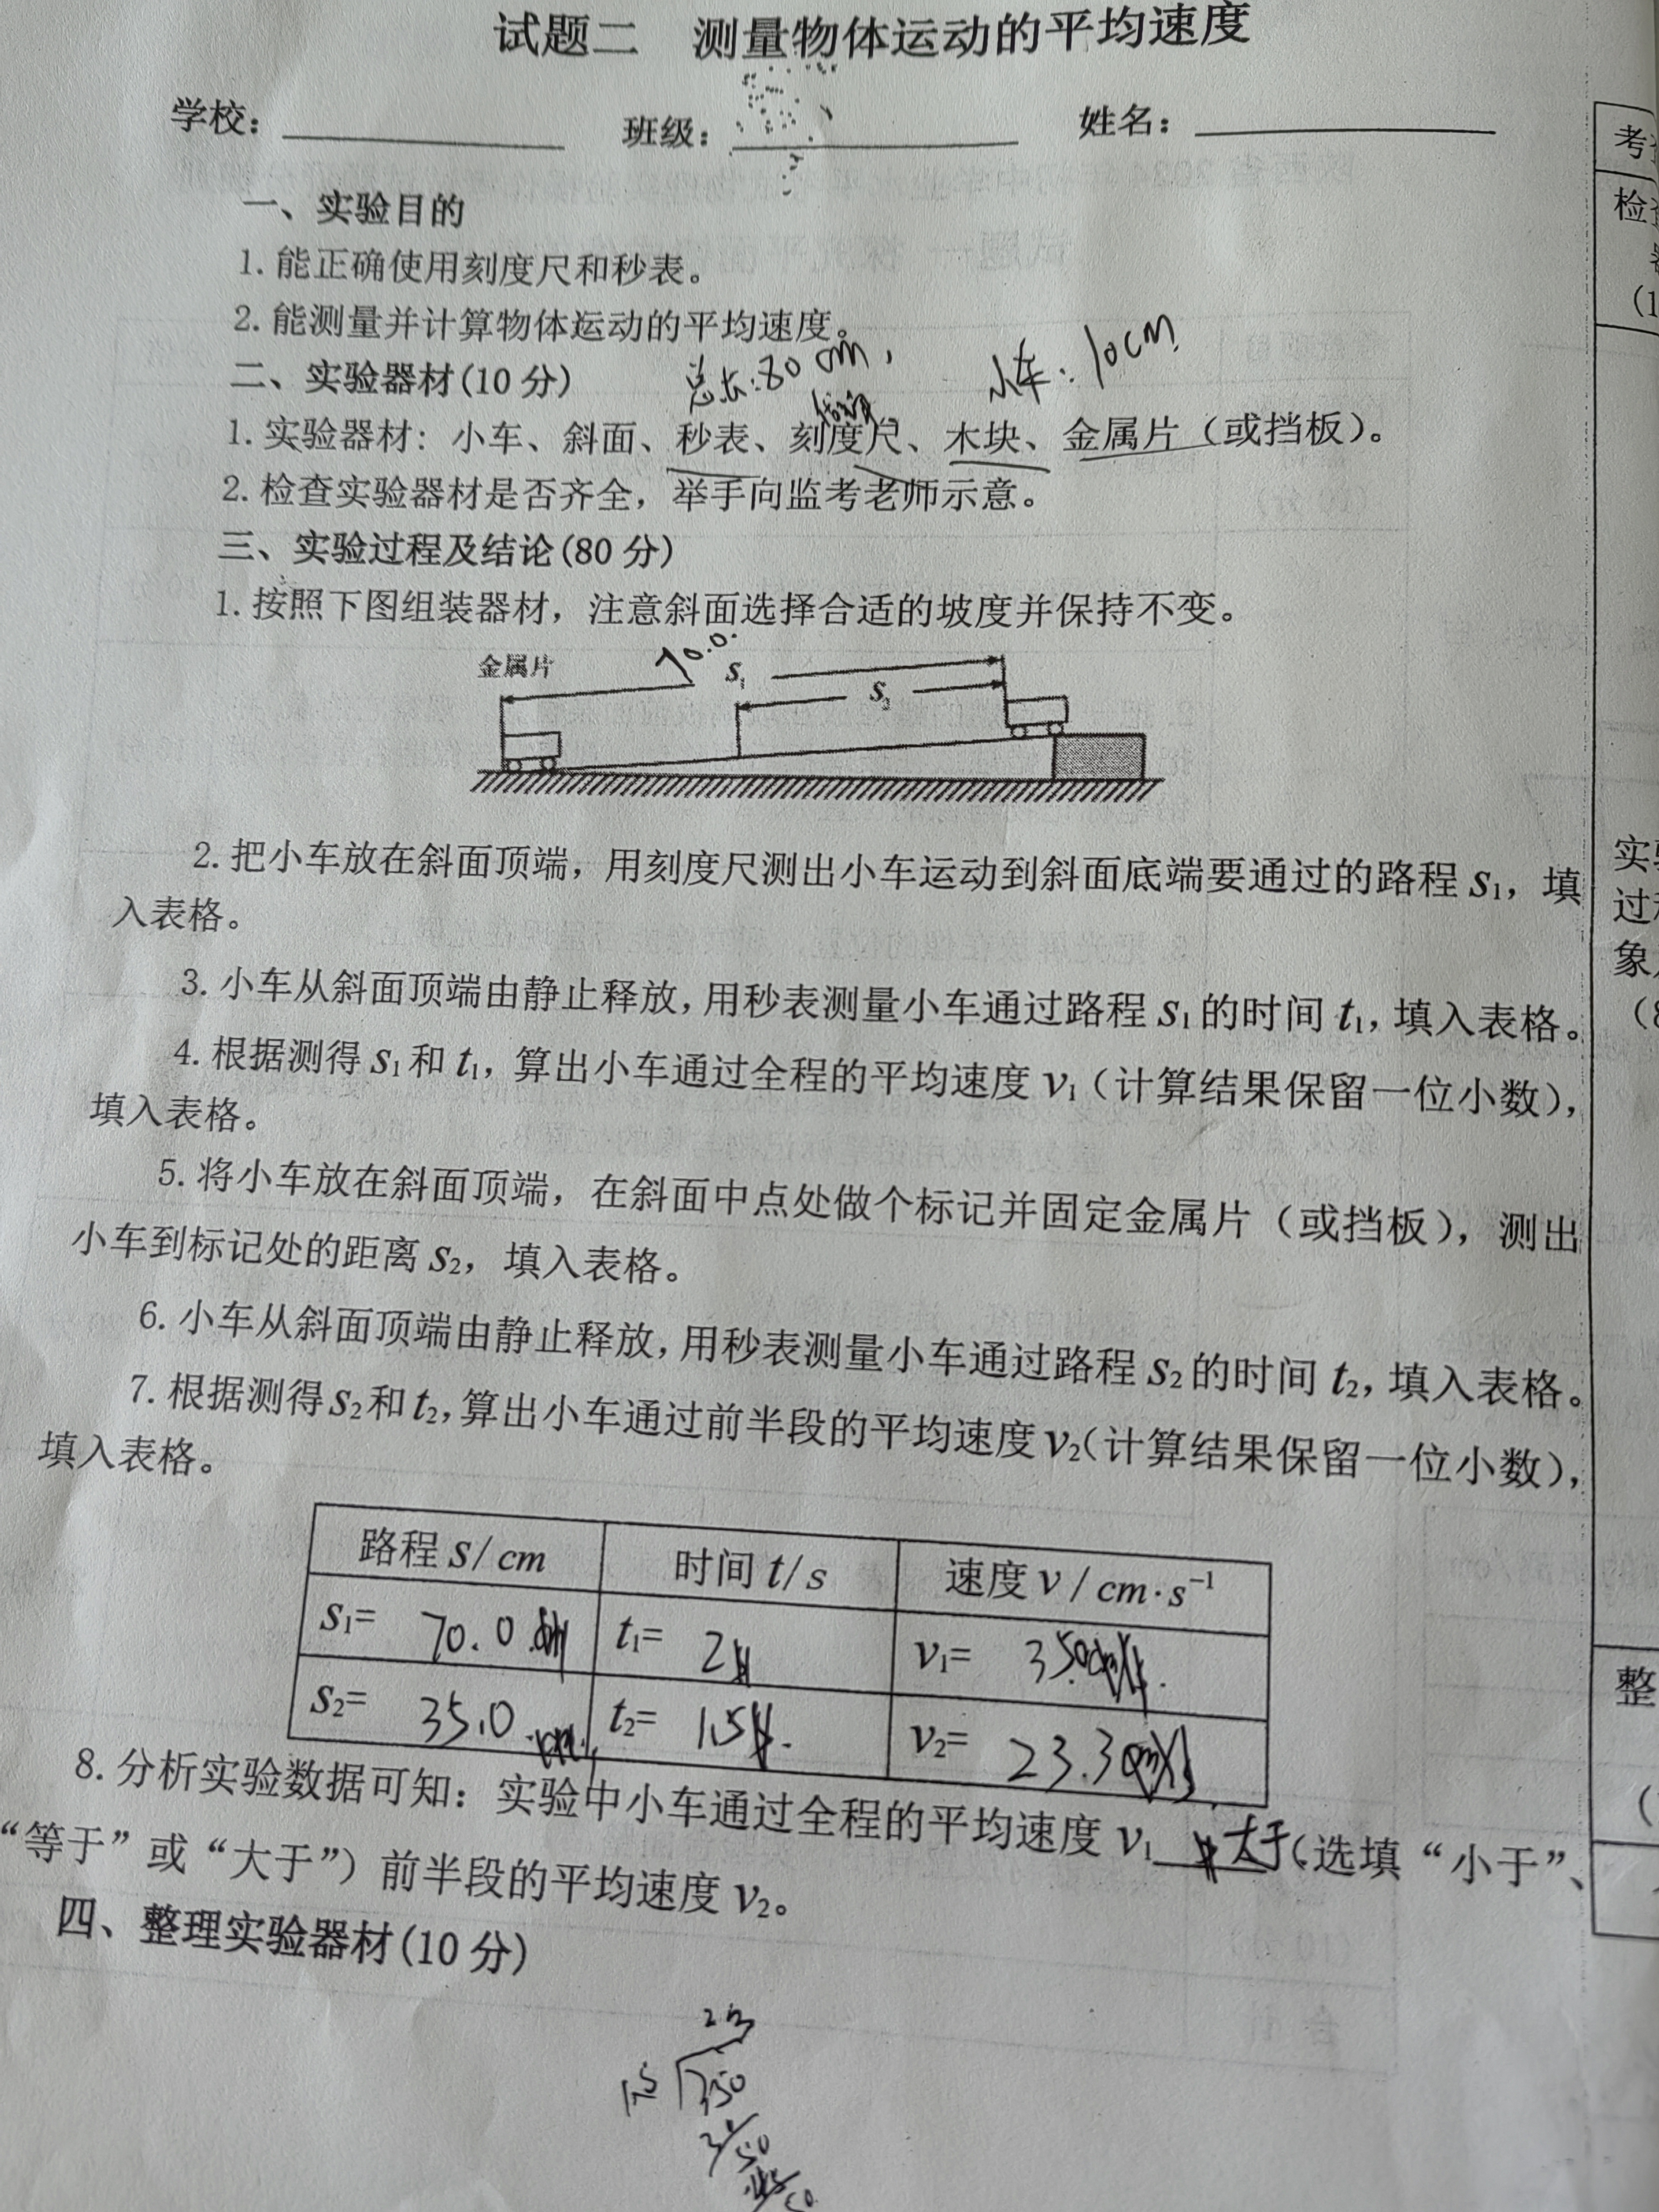 试题二 测量物体运动的平均速度
学校： 班级： 姓名：
一、实验目的
1.能正确使用刻度尺和秒表。
2.能测量并计算物体运动的平均速度。
二、实验器材(10分) 总长:80cm, 小车:10cm
1.实验器材：小车、斜面、秒表、刻度尺、木块、金属片（或挡板）。
2.检查实验器材是否齐全，举手向监考老师示意。
三、实验过程及结论(80分)
1.按照下图组装器材，注意斜面选择合适的坡度并保持不变。
金属片 70.0. s₁
s₂
2.把小车放在斜面顶端，用刻度尺测出小车运动到斜面底端要通过的路程s₁，填
入表格。
3.小车从斜面顶端由静止释放，用秒表测量小车通过路程s₁的时间t₁，填入表格。
4.根据测得s₁和t₁，算出小车通过全程的平均速度v₁（计算结果保留一位小数），
填入表格。
5.将小车放在斜面顶端，在斜面中点处做个标记并固定金属片（或挡板），测出
小车到标记处的距离s₂，填入表格。
6.小车从斜面顶端由静止释放，用秒表测量小车通过路程s₂的时间t₂，填入表格。
7.根据测得s₂和t₂，算出小车通过前半段的平均速度v₂（计算结果保留一位小数），
填入表格。
路程s/cm 时间t/s 速度v/cm·s⁻¹
s₁= 70.0 t₁= 2 v₁= 35.0
s₂= 35.0 t₂= 1.5 v₂= 23.3
8.分析实验数据可知：实验中小车通过全程的平均速度v₁ 大于（选填“小于”、
“等于”或“大于”）前半段的平均速度v₂。
四、整理实验器材(10分)
23
15 350
考
检
(1
实
过
象
（8
整
（